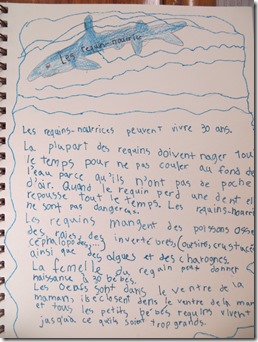 Les requin-nourrice
Les requins-nourrices peuvent vivre 30 ans.
La plupart des requins doivent nager tout
le temps pour ne pas couler au fond de
l'eau parce qu'ils n'ont pas de poche
d'air. Quand le requin perd une dent elle
repousse tout le temps. Les requins-nourri
ne sont pas dangereux.
Les requins mangent des poissons osse
des raies, des invertébrés, (oursins, crustacés
céphalopodes,...)
ainsi que des algues et des charognes.
La femelle du requin peut donner
naissance à 30 bébés.
Les bébés sont dans le ventre de la
maman, ils éclosent dans le ventre de la mam
et tous les petits bébés requins vivent
jusqu'à ce qu'ils soit trop grands.